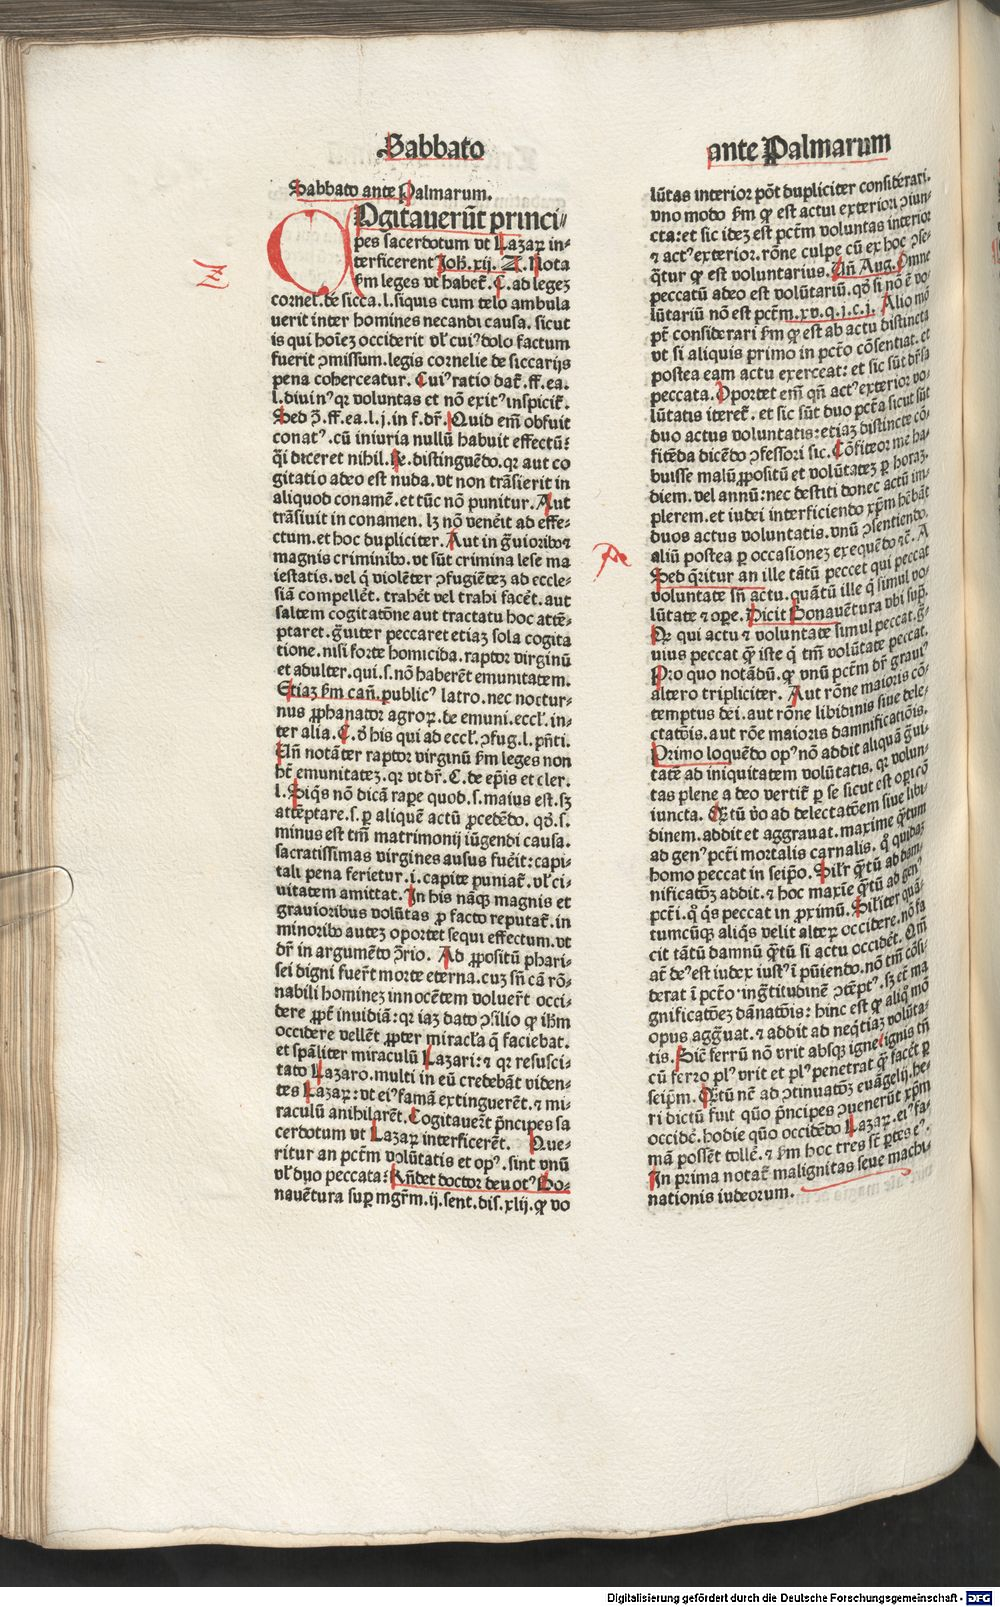 Sabbato
ante Palmarum
Sabbato ante Palmarum.
COgitauerūt princi⸗
pes sacerdotum vt Lazaꝝ in⸗
terficerent Joh̄. xij. Z. Nota
ẜm leges vt habet̄. C. ad legeꝫ
cornel. de sicca. l. siquis cum telo ambula
uerit inter homines necandi causa. sicut
is qui hoīeꝫ occiderit vl̄ cuiꝰ dolo factum
fuerit ꝯmissum. legis cornelie de siccarijs
pena coherceatur. Cuiꝰ ratio dat̄. ff. ea.
l. diuinꝰ qꝛ voluntas et nō exitꝰ inspicit̄.
Sed ꝯ̄. ff. ea. l. j. in f. dr̄. Quid em̄ obfuit
conatꝰ. cū iniuria nullū habuit effectū:
q̄i diceret nihil. Re. distinguēdo. qꝛ aut co
gitatio adeo est nuda. vt non trāsierit in
aliquod conamē. et tūc nō punitur. Aut
trāsiuit in conamen. lꝫ nō venēit ad effe⸗
ctum. et hoc dupliciter. Aut in g̃uioribꝰ ⁊
magnis criminibꝰ. vt sūt crimina lese ma
iestatis. vel q̇ violēter ꝯfugiēteꝫ ad eccle⸗
siā compellēt. trahēt vel trahi facēt. aut
saltem cogitatōne aut tractatu hoc attē⸗
ptaret. g̃uiter peccaret etiaꝫ sola cogita
tione. nisi forte homicida. raptor virginū
et adulter. qui. s. nō haberēt emunitatem.
Etiaꝫ ẜm cañ. publicꝰ latro. nec noctur⸗
nus ꝓphanator agroꝝ. de emuni. eccl̄. in⸗
ter alia. C. d̄ his qui ad eccl̄. ꝯfug. l. pn̄ti.
Un̄ notāter raptor virginū ẜm leges non
hꝫ emunitateꝫ. qꝛ vt dr̄. C. de ep̄is et cler.
l. Siq̇s nō dicā raꝑe quod. s. maius est. sꝫ
attēptare. s. ꝑ aliquē actū ꝓcedēdo. qd̄. s.
minus est tm̄ matrimonij iūgendi causa.
sacratissimas virgines ausus fuēit: capi⸗
tali pena ferietur. i. capite puniat̄. vl̄ ci⸗
uitatem amittat. In his nāqꝫ magnis et
grauioribus volūtas ꝓ facto reputat̄. in
minoribꝰ auteꝫ oportet sequi effectum. vt
dr̄ in argumēto ꝯ̄rio. Ad ꝓpositū phari⸗
sei digni fuer̄t morte eterna. cuꝫ sn̄ cā rō⸗
nabili homineꝫ innocētem voluer̄t occi⸗
dere ꝓpt̄ inuidiā: qꝛ iaꝫ dato ꝯsilio ꝙ ih̄m
occidere vellēt ꝓpter miracl̄a q̄ faciebat.
et spāliter miraculū Lazari: ⁊ qꝛ resusci⸗
tato Lazaro. multi in eū credebāt viden⸗
tes Lazaꝝ: vt eiꝰ famā extinguerēt. ⁊ mi⸗
raculū anihilarēt. Cogitauer̄t pn̄cipes sa
cerdotum vt Lazaꝝ interficerēt. Que⸗
ritur an pctm̄ volūtatis et opꝰ. sint vnū
vl̄ duo peccata: Rn̄det doctor deuotꝰ Bo⸗
nauētura suꝑ mgr̄m. ij. sent. dis. xlij. ꝙ vo
lūtas interior pōt dupliciter considerari.
vno modo ẜm ꝙ est actui exteriori ꝯiun⸗
cta: et sic ideꝫ est pctm̄ voluntas interior
⁊ actꝰ exterior. rōne culpe cū ex hoc ꝯse⸗
q̄tur ꝙ est voluntarius. Un̄ Aug. Omne
peccatū adeo est volūtariū. qd̄ si nō ē vo
lūtariū nō est pctm̄. xv. q. j. c. j. Alio mō
pt̄ considerari ẜm ꝙ est ab actu distincta
vt si aliquis primo in pctō cōsentiat. et
postea eam actu exerceat: et sic sūt dr̄sa
peccata. Oportet em̄ qn̄ actꝰ exterior vo⸗
lūtatis iteret̄. et sic sūt duo pctā sicut sūt
duo actus voluntatis: etiaꝫ distincte cō⸗
fitēda dicēdo ꝯfessori sic. Cōfiteor me ha⸗
buisse malū ꝓpositū et volūtateꝫ ꝑ horaꝫ.
diem. vel annū: nec destiti donec actū im⸗
plerem. et iudei interficiendo xp̄m hēbāt
duos actus voluntatis. vnū ꝯsentiendo.
aliū postea ꝑ occasioneꝫ exequēdo ⁊c̄. A
Sed q̄ritur an ille tātū peccet qui peccat
voluntate sn̄ actu. quātū ille q̇ simul vo⸗
lūtate ⁊ oꝑe. Dicit Bonauētura vbi suꝑ.
Qꝛ qui actu ⁊ voluntate simul peccat. g̃⸗
uius peccat ꝙ̄ iste q̇ tm̄ volūtate peccat.
Pro quo notādū. ꝙ vnū pctm̄ dr̄ grauiꝰ
altero tripliciter. Aut rōne maioris cō⸗
temptus dei. aut rōne libidinis siue dele⸗
ctatōis. aut rōe maioris damnificatiōis.
Primo loquēdo opꝰ nō addit aliquā g̃ui⸗
tatē ad iniquitatem volūtatis. qꝛ volun⸗
tas plene a deo vertit̄ ꝑ se sicut est oꝑi cō
iuncta. Q̄tū v̄o ad delectatōem siue libi
dinem. addit et aggrauat. maxime q̄tum
ad genꝰ pcti mortalis carnalis. q̊ quidaꝫ
homo peccat in seip̄o. Sil̄r q̄tū ab dam⸗
nificatōꝫ addit. ⁊ hoc maxīe q̄tū ab genꝰ
pcti. q̊ q̇s peccat in ꝓximū. Sil̄iter quā⸗
tumcūqꝫ aliq̇s velit alteꝝ occidere. nō fa
cit tātū damnū q̄tū si actu occidēt. Qm̄
at̄ deꝰ est iudex iustꝰ ī pūiendo. nō tm̄ cōsi⸗
derat ī pctō ingr̄titudinē ꝯtēptꝰ. sꝫ et̄ ma
gnificatōeꝫ dānatōis: hinc est ꝙ aliq̊ mō
opus agg̃uat. ⁊ addit ad neq̇tiaꝫ volūta⸗
tis. Sic̄ ferrū nō vrit absqꝫ igne: ignis tn̄
cū ferro plꝰ vrit et plꝰ penetrat ꝙ̄ facēt ꝑ
seip̄m. Q̄tū nē ad ꝯtinuatōꝫ euāgelij. he⸗
ri dictū fuit quō pn̄cipes ꝯuenerūt xp̄m
occidē. hodie quō occidēdo Lazaꝝ. eiꝰ fa⸗
mā possēt tollē. ⁊ ẜm hoc tres st̄ ꝑtes eꝰ.
In prima notat̄ malignitas seue machi⸗
nationis iudeorum.
Digitalisierung gefördert durch die Deutsche Forschungsgemeinschaft - DFG